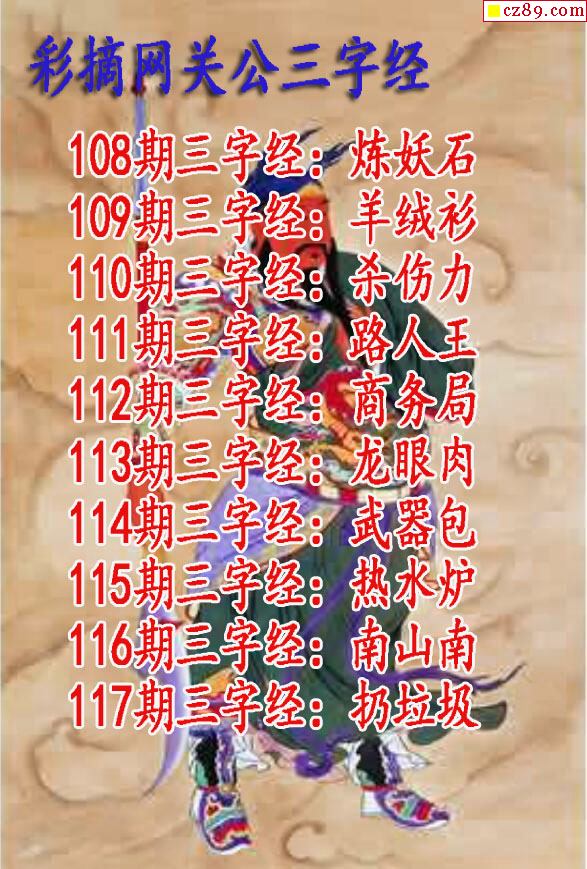 cz89.com
彩摘网关公三字经
108期三字经：炼妖石
109期三字经：羊绒衫
110期三字经：杀伤力
111期三字经：路人王
112期三字经：商务局
113期三字经：龙眼肉
114期三字经：武器包
115期三字经：热水炉
116期三字经：南山南
117期三字经：扔垃圾